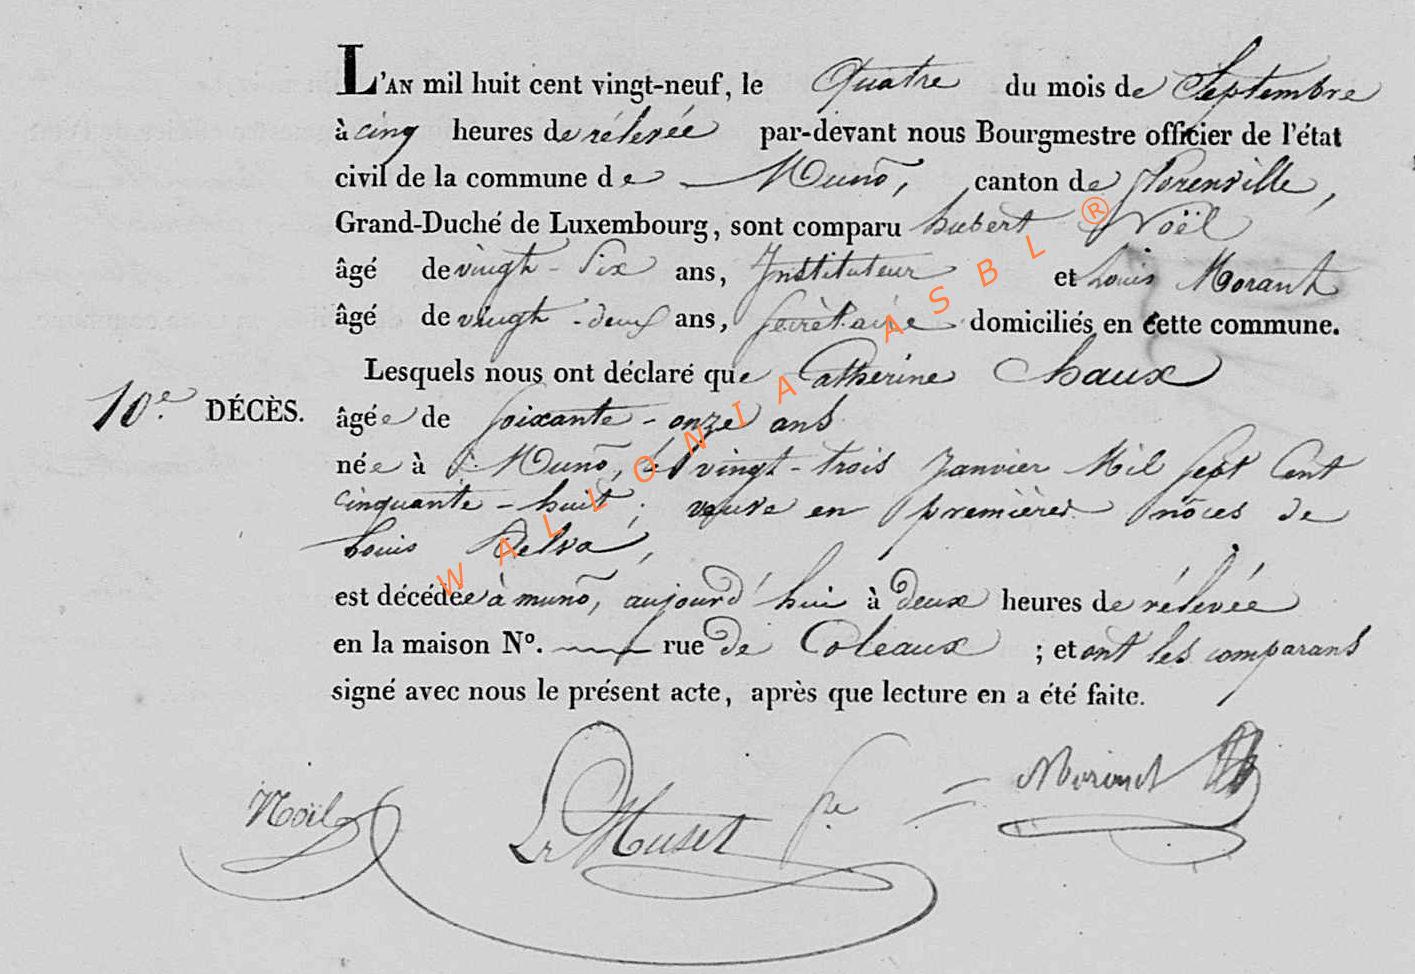 L'AN mil huit cent vingt-neuf, le Quatre du mois de Septembre
à cinq heures de rélevée par-devant nous Bourgmestre officier de l'état
civil de la commune de Munõ, canton de florenville,
Grand-Duché de Luxembourg, sont comparu hubert Noël
âgé de vingt-Six ans, Instituteur et Louis Morant
âgé de vingt-deux ans, Secrètaire domiciliés en cette commune.
Lesquels nous ont déclaré que Catherine Chaux
10e. DÉCÈS.
âgée de soixante-onze ans
née à Munõ, le vingt-trois Janvier Mil Sept Cent
cinquante-huit, veuve en premières nôces de
Louis Delva,
est décédée à munõ, aujourd'hui à deux heures de rélevée
en la maison No. rue de Coleaux ; et ont les comparans
signé avec nous le présent acte, après que lecture en a été faite.
Noël Muset Morant
WALLONIA ASBL ®